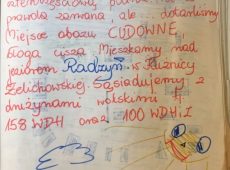 zamana, ale... dotarliśmy
Miejsce obozu CUDOWNE
błoga cisza Mieszkamy nad
jeziorem Radzyń w Kuźnicy
Żelichowskiej. Sąsiadujemy z
drużynami wolskimi
158 WDH oraz 100 WDHiZ